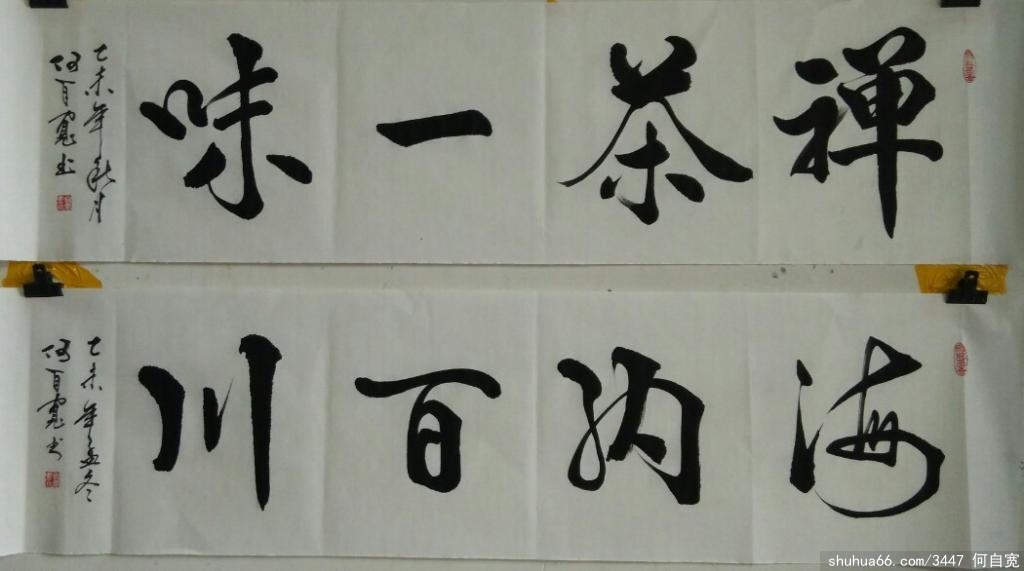 禅茶一味
乙未年秋月
何自宽书
海纳百川
乙未年孟冬
何自宽书
shuhua66.com/3447 何自宽